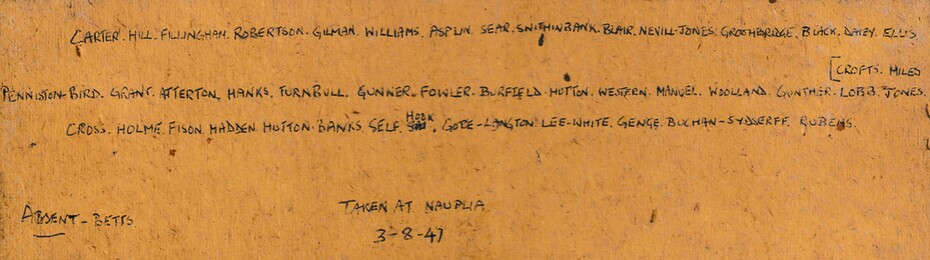 CARTER. HILL. FILLINGHAM. ROBERTSON. GILMAN. WILLIAMS. ASPLIN. SEAR. SWITHINBANK. BLAIR. NEVILL-JONES. GROOMBRIDGE. BLACK. DAVEY. ELLIS
[CROFTS. MILES
PENNISTON-BIRD. GRANT. ATTERTON. HANKS. TURNBULL. GUNNER. FOWLER. BURFIELD. HUTTON. WESTERN. MANUEL. WOOLLAND. GUNTHER. LOBB. JONES.
CROSS. HOLME. FISON. MADDEN. HUTTON. BANKS. SELF. HOOK. GORE-LANGTON. LEE-WHITE. GENGE. BUCHAN-SYDSERFF. RUBENS.
ABSENT - BETTS
TAKEN AT NAUPLIA
3-8-47